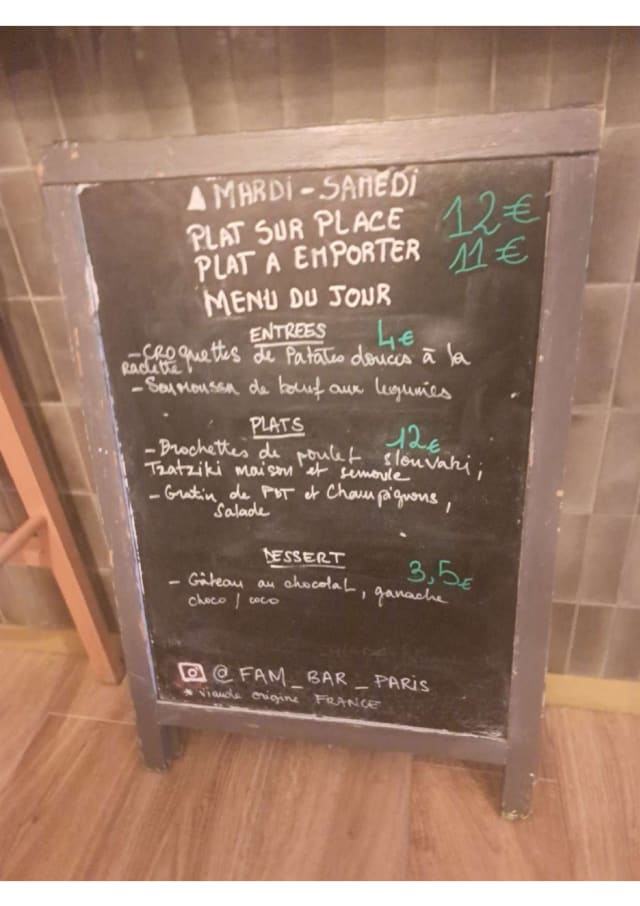 MARDI - SAMEDI
PLAT SUR PLACE 12€
PLAT A EMPORTER 11€
MENU DU JOUR
ENTREES 4€
- CROquettes de Patates douces à la
Raclette
- Soumoussa de bœuf aux legumes
PLATS 12€
- Brochettes de poulet slouvaki,
Tzatziki maison et semoule
- Gratin de PDT et Champignons,
Salade
DESSERT 3,5€
- Gâteau au chocolat, ganache
choco / coco
@FAM_BAR_PARIS
* viande origine FRANCE